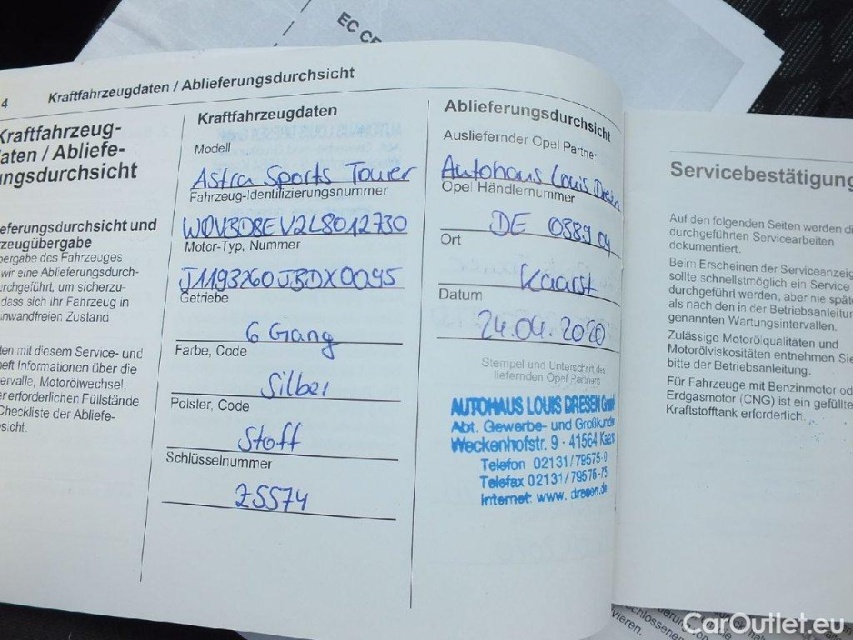 EC
4 Kraftfahrzeugdaten / Ablieferungsdurchsicht
Kraftfahrzeug-
aten / Abliefe-
ngsdurchsicht
eferungsdurchsicht und
zeugübergabe
bergabe des Fahrzeuges
wir eine Ablieferungsdurch-
rchgeführt, um sicherzu-
dass sich ihr Fahrzeug in
nwandfreien Zustand
ten mit diesem Service- und
heft Informationen über die
ervalle, Motorölwechsel
er erforderlichen Füllstände
Checkliste der Abliefe-
sicht.
Kraftfahrzeugdaten
Modell
Astra Sports Tourer
Fahrzeug-Identifizierungsnummer
W0VBD8EV2L8012730
Motor-Typ, Nummer
J1193260JBDX0095
Getriebe
6 Gang
Farbe, Code
Silber
Polster, Code
Stoff
Schlüsselnummer
Z5574
Ablieferungsdurchsicht
Ausliefernder Opel Partner
Autohaus Louis Dresen
Opel Händlernummer
DE 0389 04
Ort
Kaarst
Datum
24.04.2020
Stempel und Unterschrift des
liefernden Opel Partners
AUTOHAUS LOUIS DRESEN GmbH
Abt. Gewerbe- und Großkunde
Weckenhofstr. 9 · 41564 Kaars
Telefon 02131/79575-0
Telefax 02131/79575-75
Internet: www. dresen.de
Servicebestätigung
Auf den folgenden Seiten werden di
durchgeführten Servicearbeiten
dokumentiert.
Beim Erscheinen der Serviceanzeig
sollte schnellstmöglich ein Service
durchgeführt werden, aber nie späte
als nach den in der Betriebsanleitu
genannten Wartungsintervallen.
Zulässige Motorölqualitäten und
Motorölviskositäten entnehmen Sie
bitte der Betriebsanleitung.
Für Fahrzeuge mit Benzinmotor od
Erdgasmotor (CNG) ist ein gefüllte
Kraftstofftank erforderlich.
CarOutlet.eu